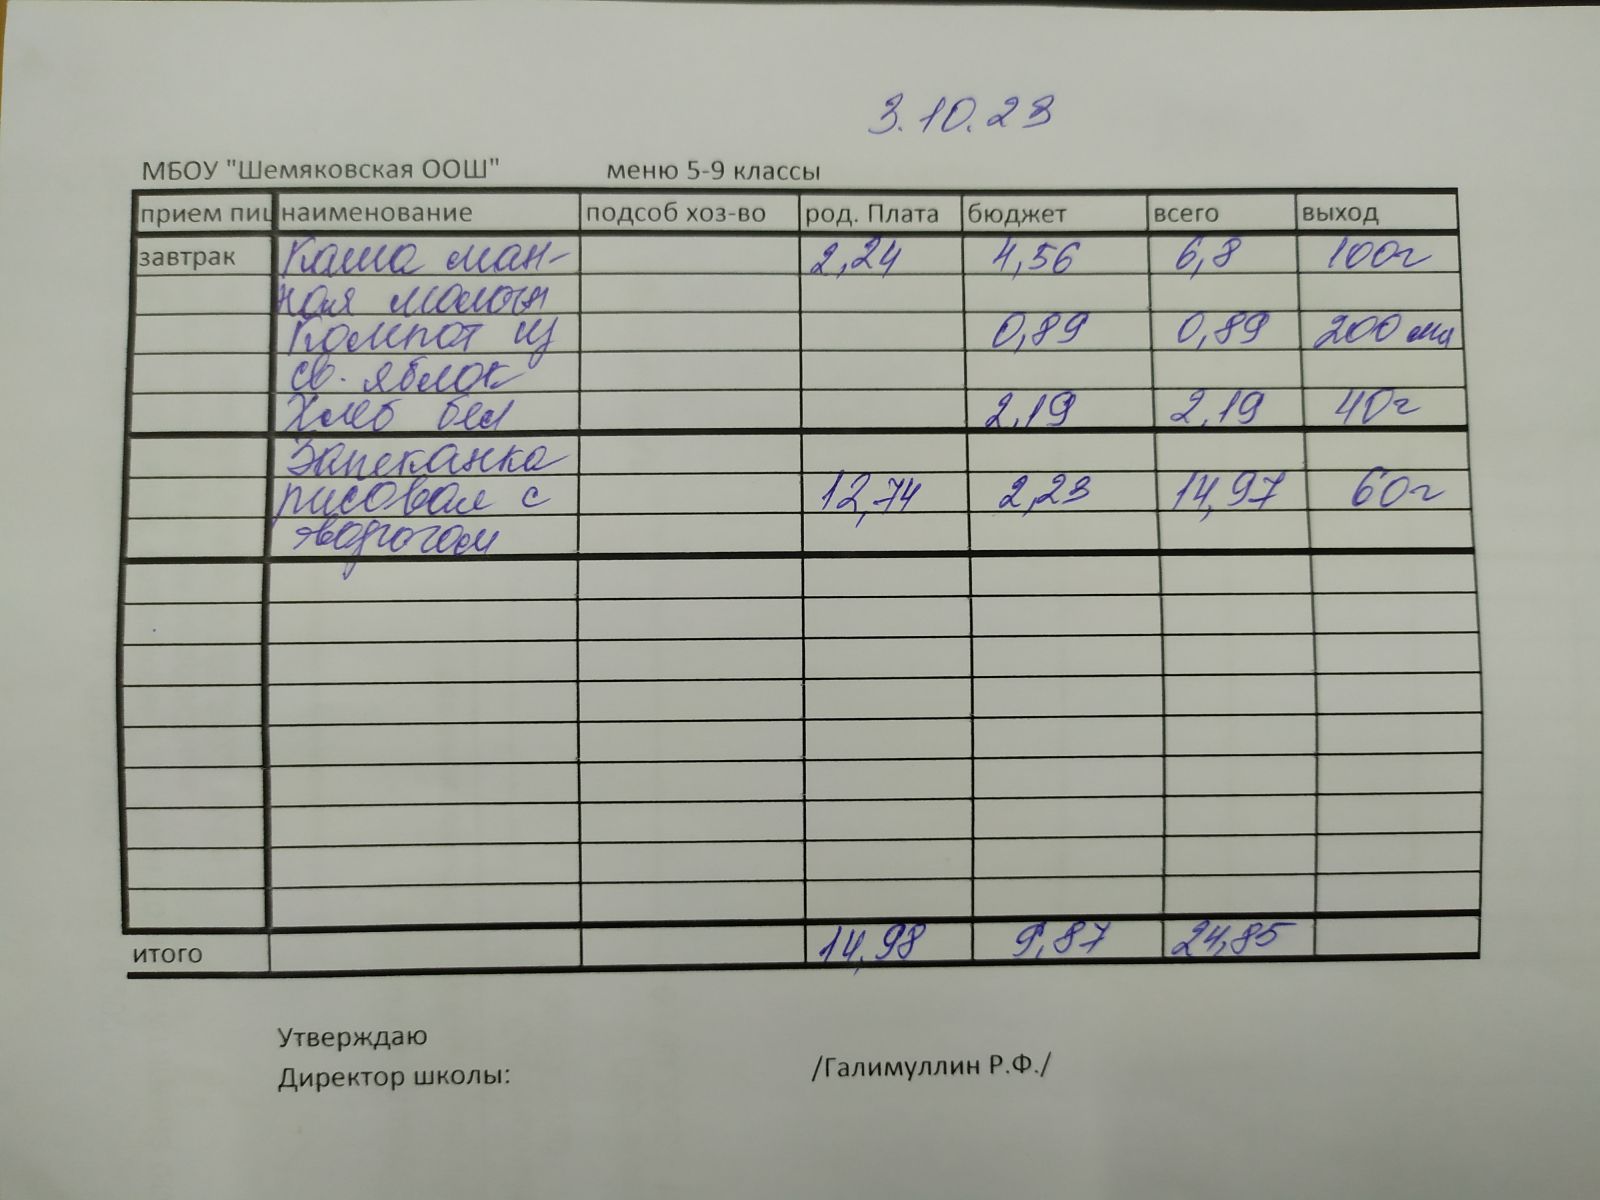 3.10.23
МБОУ "Шемяковская ООШ" меню 5-9 классы
прием пищ наименование подсоб хоз-во род. Плата бюджет всего выход
завтрак Каша ман- 2,24 4,56 6,8 100г
ная молочн
Компот из 0,89 0,89 200 мл
св. яблок
Хлеб бел 2,19 2,19 40г
Запеканка
рисовая с 12,74 2,23 14,97 60г
творогом
итого 14,98 9,87 24,85
Утверждаю
Директор школы: /Галимуллин Р.Ф./